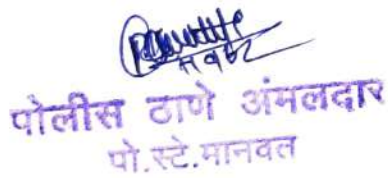 पोलीस ठाणे अंमलदार
पो.स्टे.मानवत